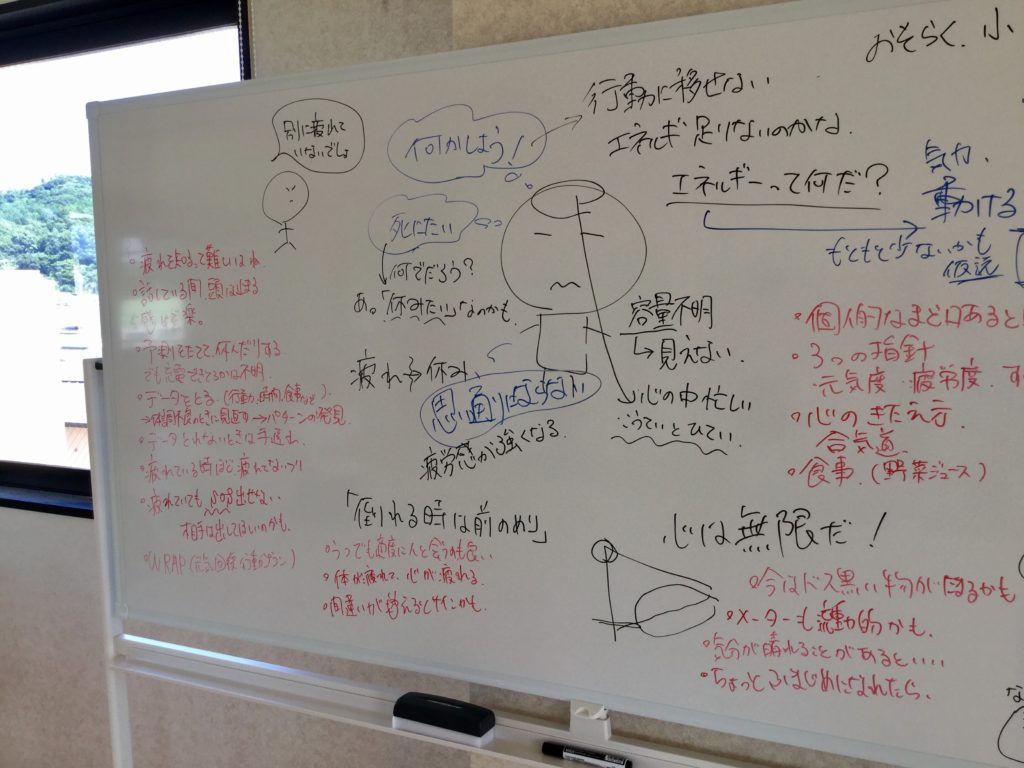 おそらく、小
別に疲れて
いないでしょ
何かしよう!
行動に移せない
エネルギー足りないのかな
エネルギーって何だ?
気力、
動ける
もともと少ないかも
仮説
死にたい
何でだろう?
あ。「休みたい」なのかも。
容量不明
見えない。
疲れ→休み
思い通りにならない
疲労感が強くなる。
心の中忙しい
こうていとひてい
・疲れを知るって難しいよね。
・話している間、頭は止まる
感じで楽。
・予測をたてて、休んだりする
でも充電できてるかは不明。
・データをとる。(行動、時間、食事など)
→体調不良のときに見返す→パターンの発見
・データとれないときは手遅れ。
・疲れている時ほど疲れてないフリ
・疲れていてもSOS出せない
相手は出してほしいのかも。
・WRAP(元気回復行動プラン)
・個人的なまど口あると
・3つの指針
元気度 疲労度 す
・心のきたえ方
合気道
・食事。(野菜ジュース)
「倒れる時は前のめり」
・うつでも適度に人と会うのも良い
・体が疲れて、心が疲れる。
・間違いが増えるとサインかも。
心は無限だ!
・今はドス黒い物が回るかも
・メーターも流動的かも。
・気分が晴れることがあるといい
・ちょっとふまじめになれたら。
な